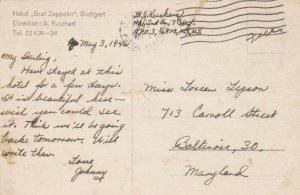 Hotel „Graf Zeppelin", Stuttgart
Direktion: A. Reichert
Tel. 224 31—34
May 3, 1946
My Darling.
Have stayed at this
hotel for a few days.
It is beautiful here—
wish you could see
it. Think we'll be going
back tomorrow. Will
write then.
Love
Johnny
Free
Miss Loreen Tipson
713 Carroll Street
Baltimore, 30.
Maryland